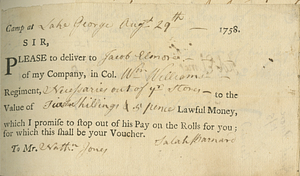 Camp at Lake George Augt 29th 1758.
SIR,
PLEASE to deliver to Jacob Elmore
of my Company, in Col. Wm Williams
Regiment, Necessaries out of ye Stores to the
Value of Shillings & Pence Lawful Money,
which I promise to stop out of his Pay on the Rolls for you;
for which this shall be your Voucher.
Salah Barnard
To Mr. Nathn Jones